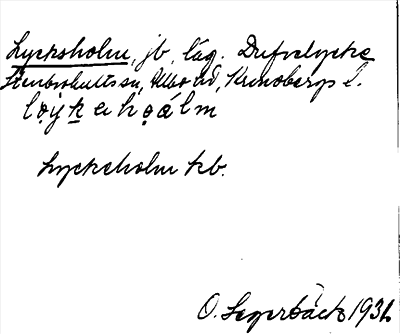 Lycksholm, jb, läg. Dufvelycke
Stenbrohults sn, Allbo hd, Kronobergs l.
Lycksholm kb.
O. Segerbäck 193